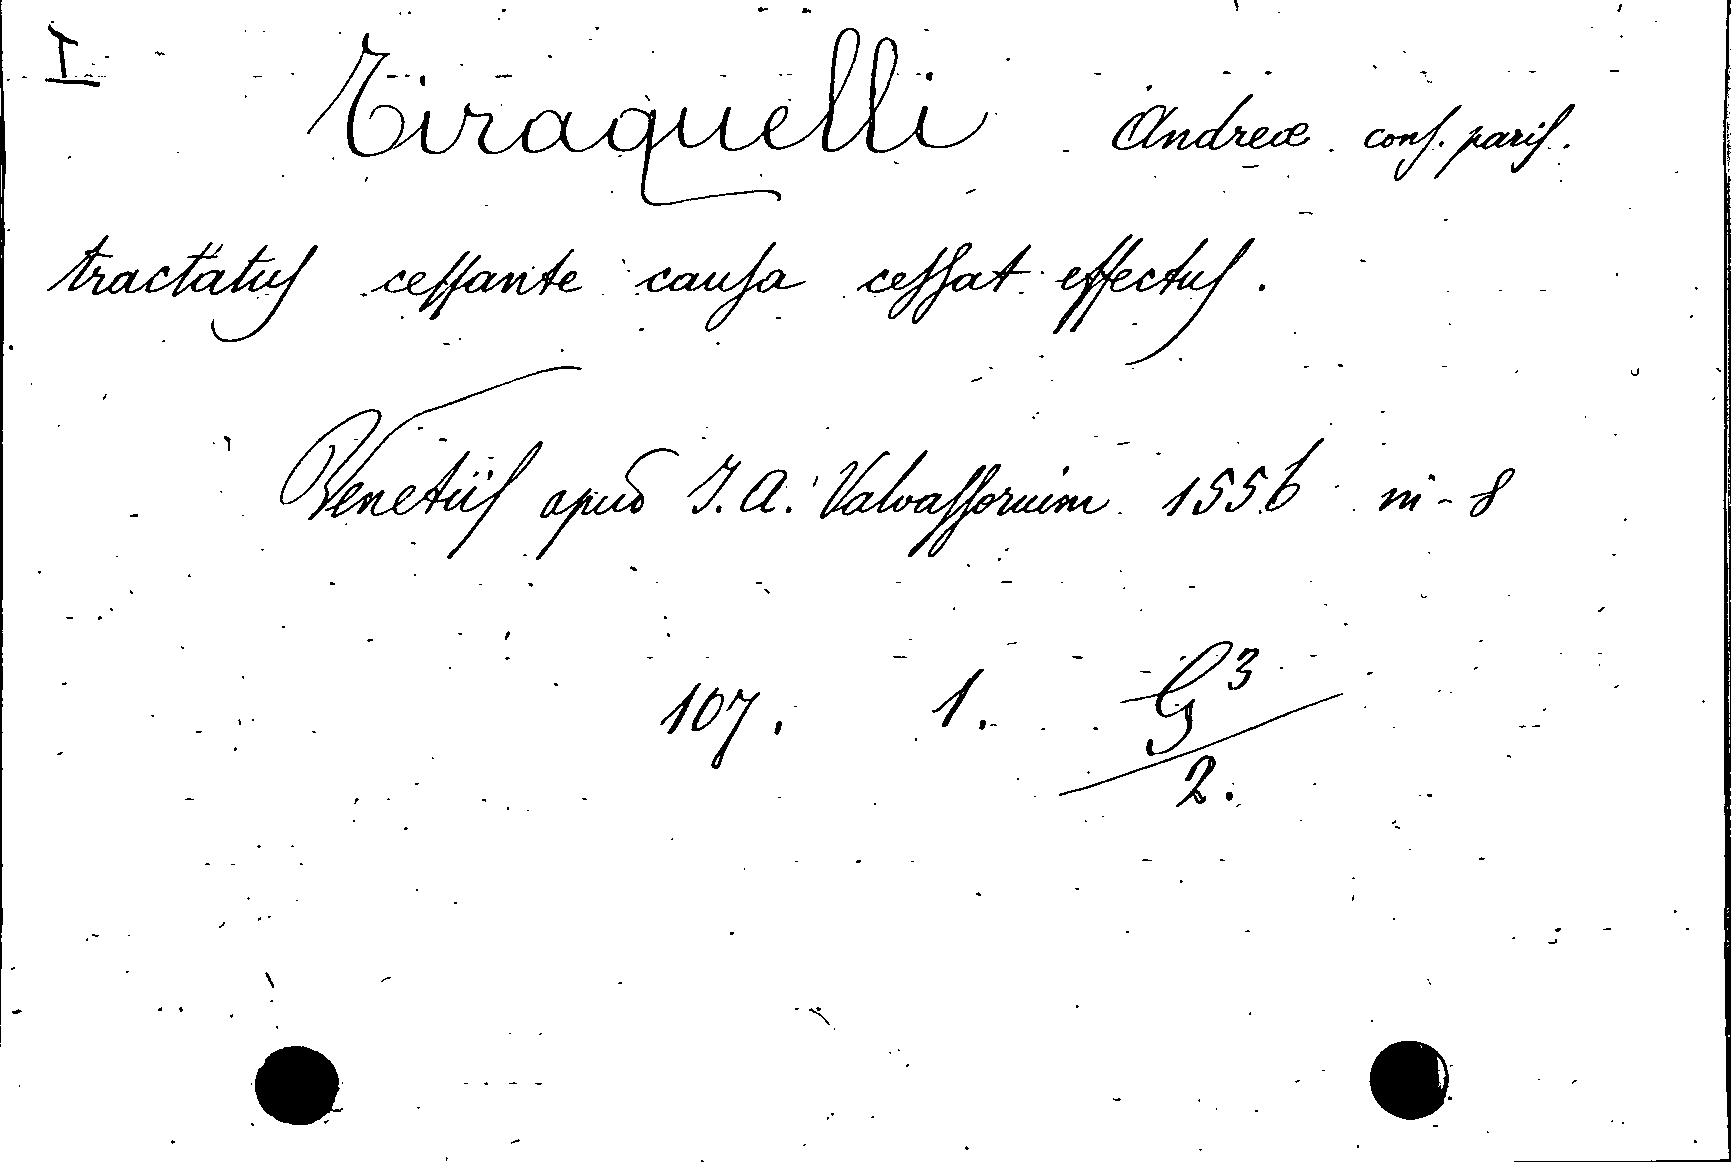 I
Tiraquelli Andreæ conſ. pariſ.
tractatuſ ceſſante cauſa ceſſat effectuſ.
Venetiiſ apud I. A. Valvaſſorium 1556 in-8
107. 1. G³/2.